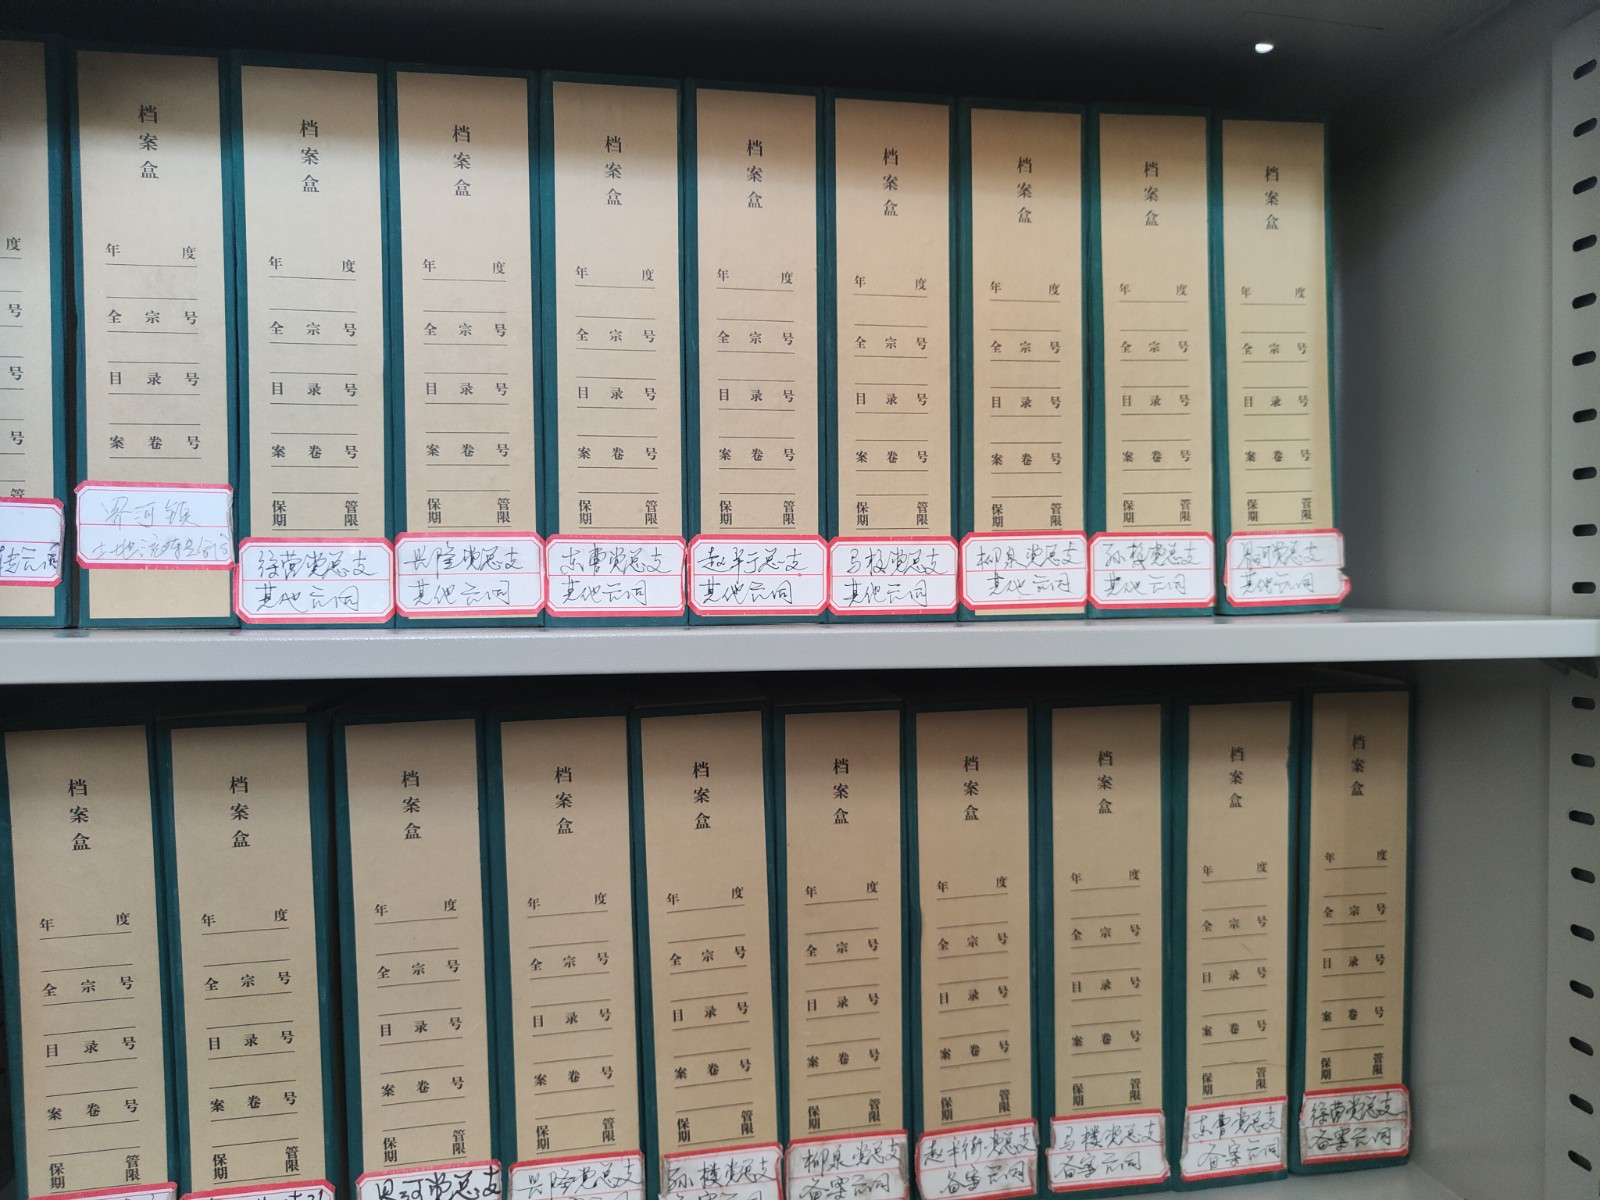 度
号
号
号
管
转合同
档案盒
年度
全宗号
目录号
案卷号
界河镇
土地流转合同
档案盒
年度
全宗号
目录号
案卷号
保管期限
徐营党总支
其他合同
档案盒
年度
全宗号
目录号
案卷号
保管期限
兴隆党总支
其他合同
档案盒
年度
全宗号
目录号
案卷号
保管期限
东曹党总支
其他合同
档案盒
年度
全宗号
目录号
案卷号
保管期限
总支
其他合同
档案盒
年度
全宗号
目录号
案卷号
保管期限
马楼党总支
其他合同
档案盒
年度
全宗号
目录号
案卷号
保管期限
柳泉党总支
其他合同
档案盒
年度
全宗号
目录号
案卷号
保管期限
孙楼党总支
其他合同
档案盒
年度
全宗号
目录号
案卷号
保管期限
界河党总支
其他合同
档案盒
年度
全宗号
目录号
案卷号
保管期限
档案盒
年度
全宗号
目录号
案卷号
保管期限
档案盒
年度
全宗号
目录号
案卷号
保管期限
界河党总支
档案盒
年度
全宗号
目录号
案卷号
保管期限
兴隆党总支
备案合同
档案盒
年度
全宗号
目录号
案卷号
保管期限
孙楼党总支
备案合同
档案盒
年度
全宗号
目录号
案卷号
保管期限
柳泉党总支
备案合同
档案盒
年度
全宗号
目录号
案卷号
保管期限
总支
备案合同
档案盒
年度
全宗号
目录号
案卷号
保管期限
马楼党总支
备案合同
档案盒
年度
全宗号
目录号
案卷号
保管期限
东曹党总支
备案合同
档案盒
年度
全宗号
目录号
案卷号
保管期限
徐营党总支
备案合同